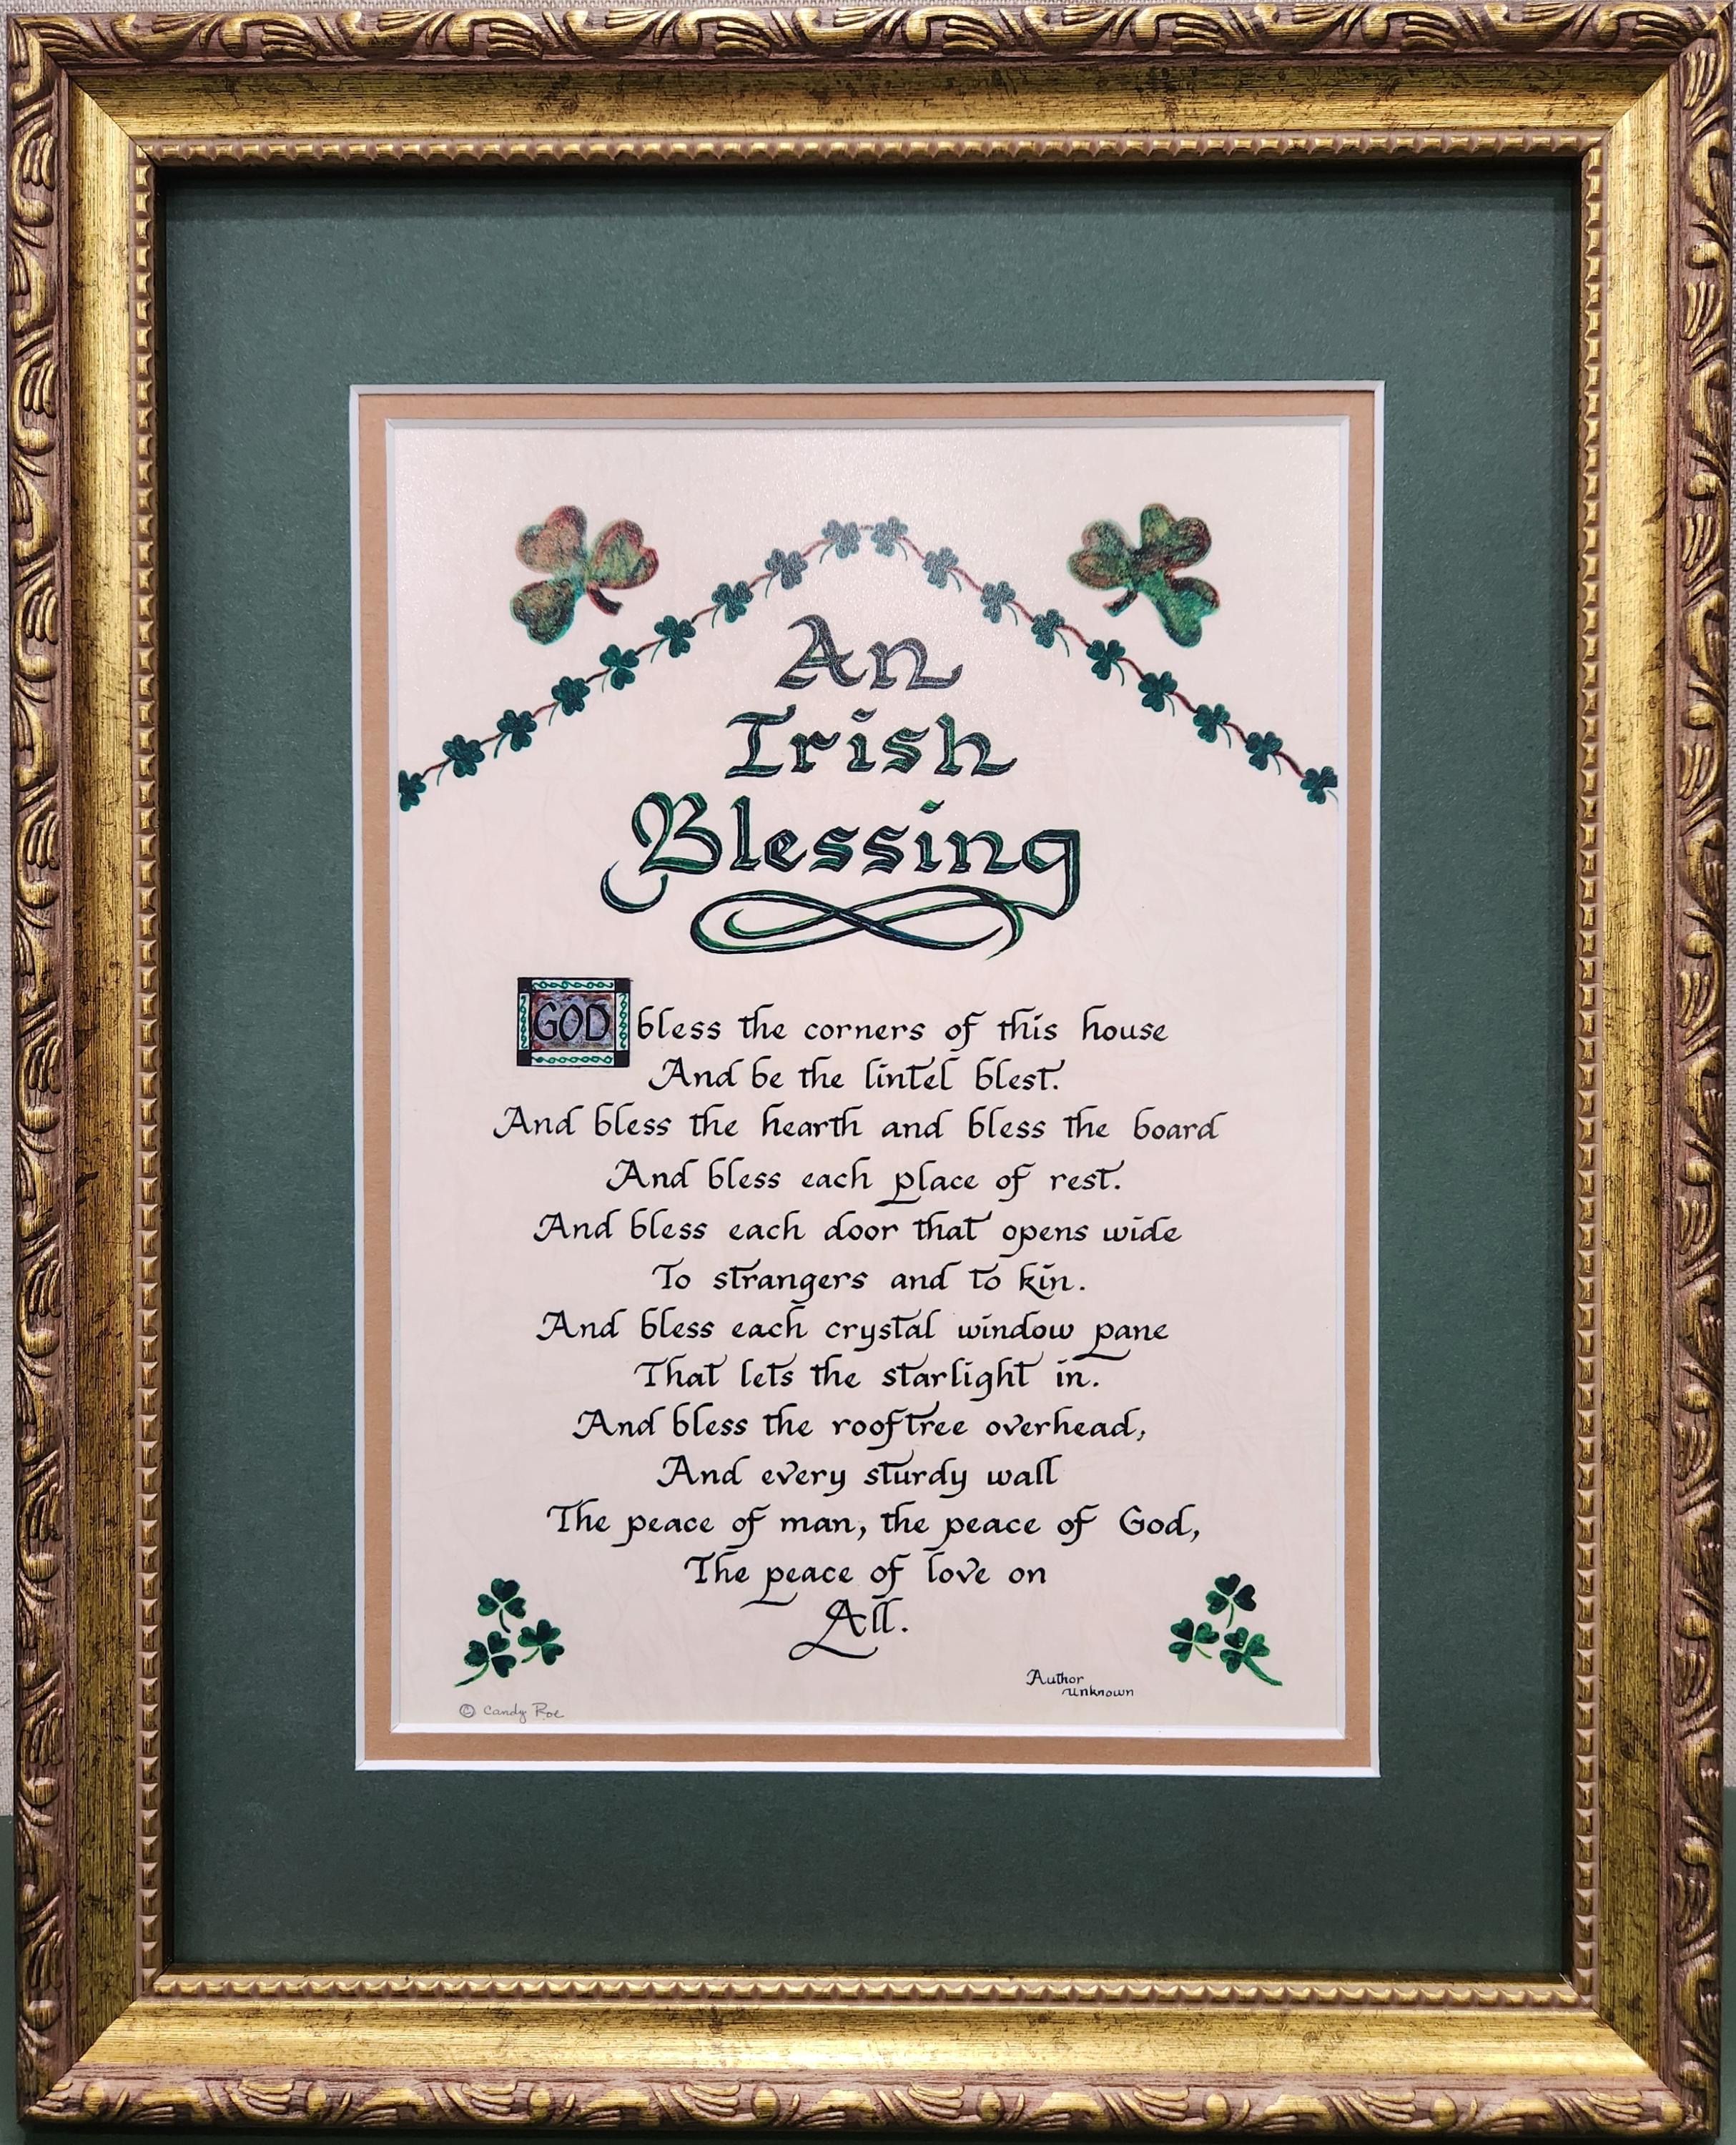 An
Irish
Blessing
GOD bless the corners of this house
And be the lintel blest.
And bless the hearth and bless the board
And bless each place of rest.
And bless each door that opens wide
To strangers and to kin.
And bless each crystal window pane
That lets the starlight in.
And bless the rooftree overhead,
And every sturdy wall
The peace of man, the peace of God,
The peace of love on
All.
Author
Unknown
© Candy Roe